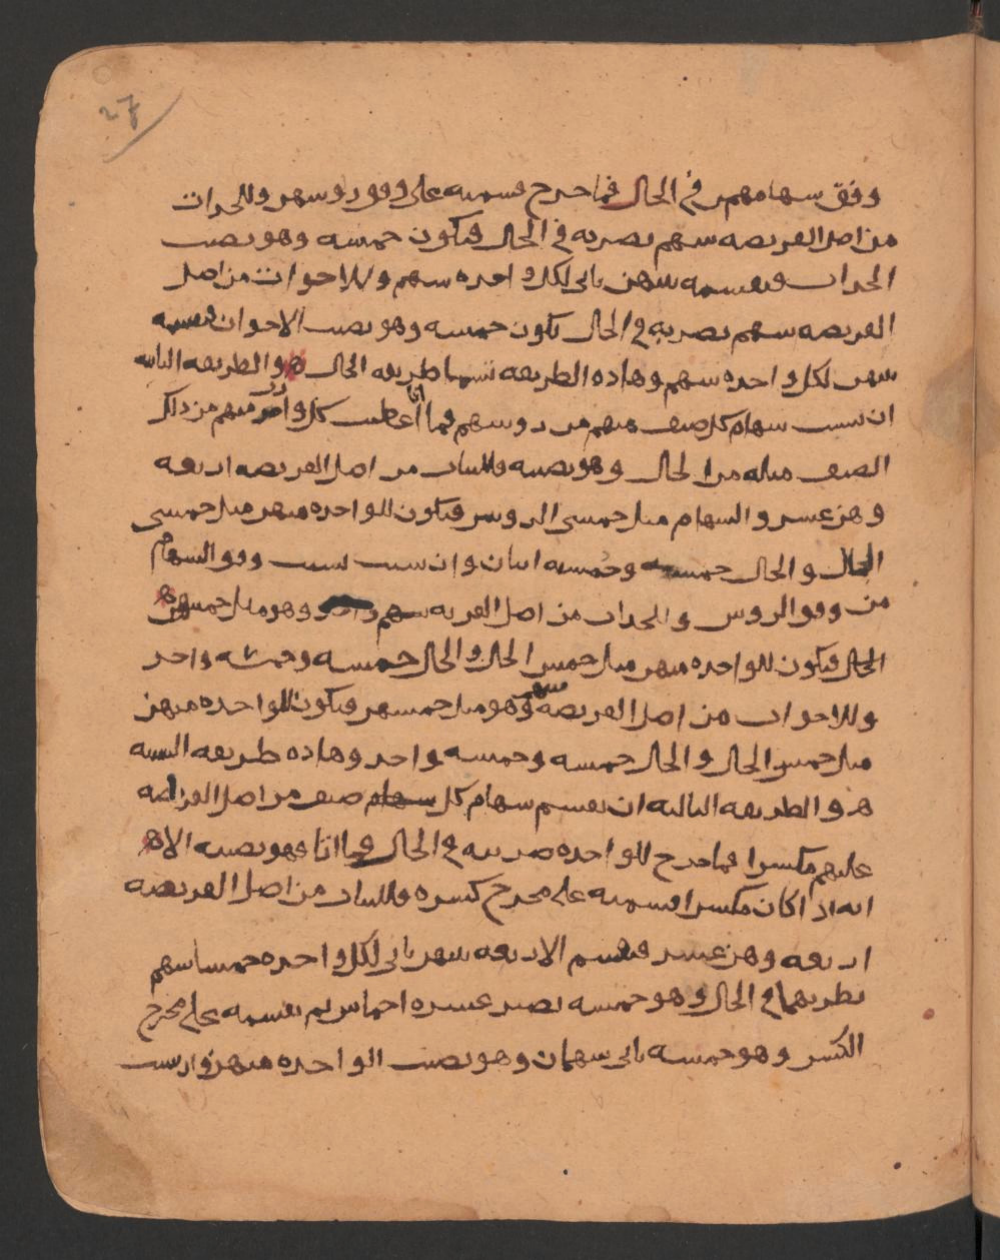 27
وفق سهامهم في الحال فما خرج قسمته على وفق روسهن وللجدات
من اصل الفريضه سهم تضربه في الحال فيكون خمسه وهو نصيب
الجدات فيقسمه بينهن ياتي لكل واحده سهم وللاخوات من اصل
الفريضه سهم تضربه في الحال يكون خمسه وهو نصيب الاخوات فتقسمه
بينهن لكل واحده سهم وهاذه الطريقه تسما طريقه الحال والطريقه الثانيه
ان تنسب سهام كل صنف منهم من روسهم فما اتا اعطيت كل واحد منهم من ذلك
الصنف مثله من الحال وهو نصيبه فللبنات من اصل الفريضه اربعه
وهن عشر والسهام مثل خمسي الروس فيكون للواحده منهن مثل خمسي
الحال والحال خمسه وخمسيه اثنان وان شيت نسبت وفق السهام
من وفق الروس وللجدات من اصل الفريضه سهم وهو مثل خمسهن
الحال فيكون للواحده منهن مثل خمس الحال والحال خمسه وخمسه واحد
وللاخوات من اصل الفريضه سهم وهو مثل خمسهن فيكون للواحده منهن
مثل خمس الحال والحال خمسه وخمسه واحد وهاذه طريقه النسبه
والطريقه الثالثه ان تقسم سهام كل صنف من اصل الفريضه
عليهم مكسرا فما خرج للواحده ضربته في الحال فما اتا فهو نصيبه الا
انه اذا كان مكسرا قسمته على مخرج كسره فللبنات من اصل الفريضه
اربعه وهن عشر فتقسم الاربعه بينهن ياتي لكل واحده خمسا سهم
تضربهما في الحال وهو خمسه يصير عشره اخماس ثم تقسمه على مخرج
الكسر وهو خمسه ياتي سهمان وهو نصيب الواحده منهن وان شيت